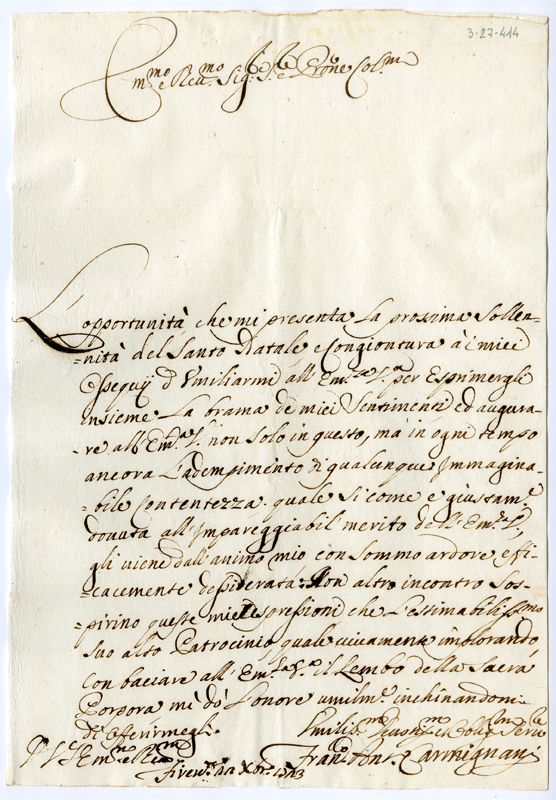 3-27-414
Em.mo e Rev.mo Sig.r S.re e P̄rone Col.mo
L'opportunità che mi presenta La prossima Sollen-
=nità del Santo Natale e Congiontura à i miei
Ossequij d'Umiliarmi all'Em.za V.a per Esprimergli
insieme La brama de miei Sentimenti ed augura-
re all'Em.a V. non solo in questo, mà in ogni tempo
ancora L'adempimento di qualunque Immagina-
=bile Contentezza. quale si come e giustam.e
dovuta all'Impareggiabil' merito dell'Em.a V.
gli viene dall'animo mio con sommo ardore effi-
=cacemente desiderata: Non altro incontro sos-
=pirino queste mie Espressioni che L'estimabilissimo
suo alto Patrocinio, quale vivamente implorando,
con baciare all'Em.a V.a il Lembo della Sacra
Porpora mi dò L'onore umilm.e inchinandomi
di Offerirmegli.
Umilis.mo
Em.a Rev.ma
Firenze
Fran.co Ant.o Carmignani